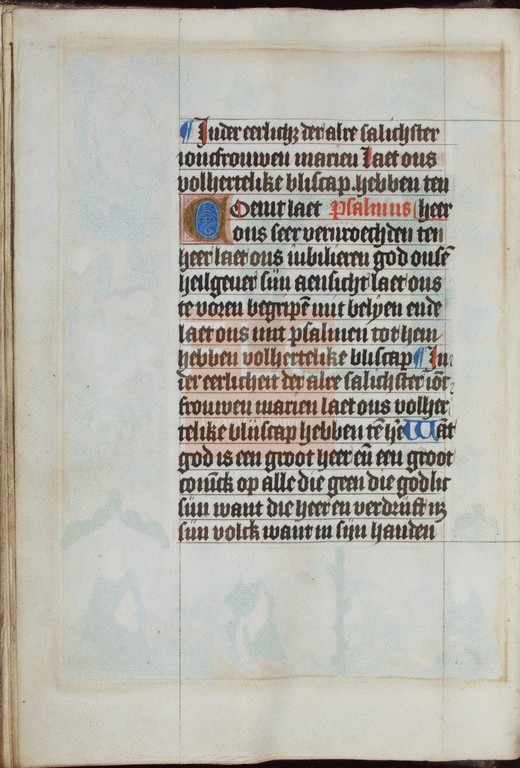 ¶ In der eerlichz der alre salichster
ioncfrouwen marien Laet ons
volhertelike bliscap hebben ten
Coemt laet psalmus heer
ons seer vervroechden ten
heer laet ons iubilieren god onsē
heilgever siin aensicht laet ons
te voren begripē mit belyen ende
laet ons mit psalmen tot hem
hebben volhertelike bliscap ¶ In
der eerlicheit der alre salichster iōc
frouwen marien laet ons volher
telike bliiscap hebben tē hē Wāt
god is een groot heer eñ een groot
conīck op alle die geen die godlic
siin want die heer en verdriift nz
siin volck want in sijn handen